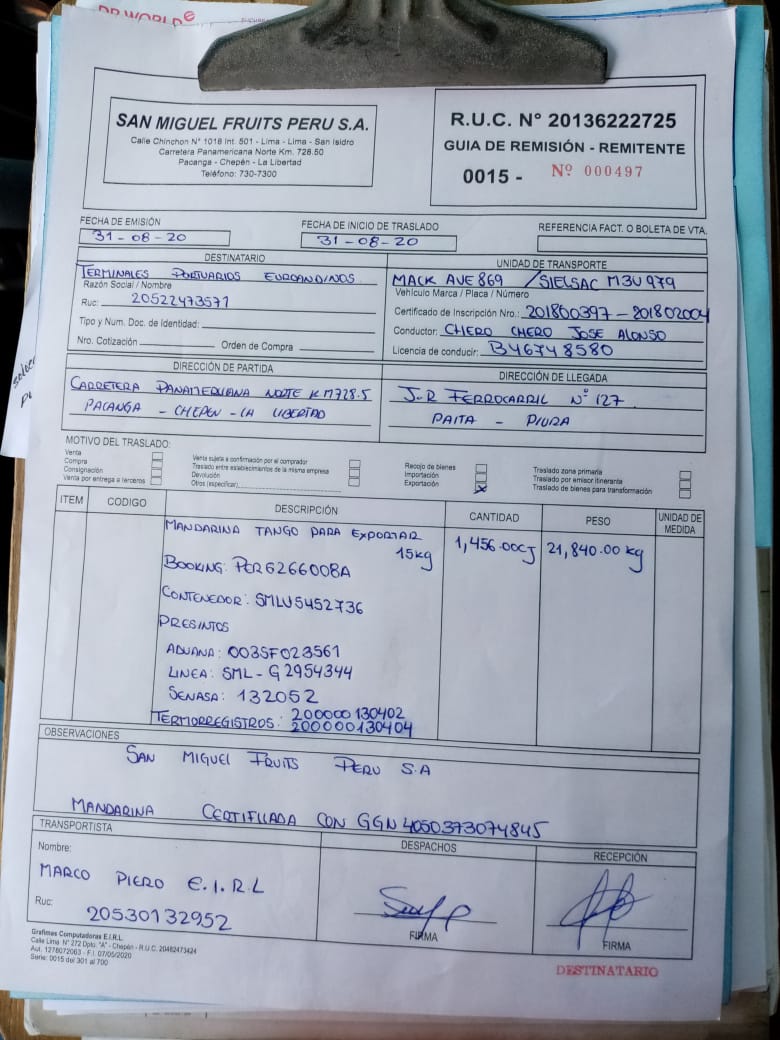 DP WORLD
SAN MIGUEL FRUITS PERU S.A.
Calle Chinchon N° 1018 Int. 501 - Lima - Lima - San Isidro
Carretera Panamericana Norte Km. 728.50
Pacanga - Chepén - La Libertad
Teléfono: 730-7300
R.U.C. N° 20136222725
GUIA DE REMISIÓN - REMITENTE
0015 - Nº 000497
FECHA DE EMISIÓN
31-08-20
FECHA DE INICIO DE TRASLADO
31-08-20
REFERENCIA FACT. O BOLETA DE VTA.
DESTINATARIO
TERMINALES PORTUARIOS EUROANDINOS
Razón Social / Nombre
Ruc: 20522473571
Tipo y Num. Doc. de Identidad:
Nro. Cotización Orden de Compra
UNIDAD DE TRANSPORTE
MACK AVE 869 / SIELSAC M3U 979
Vehículo Marca / Placa / Número
Certificado de Inscripción Nro.: 201800397 - 201802004
Conductor: CHERO CHERO JOSE ALONSO
Licencia de conducir: B46748580
DIRECCIÓN DE PARTIDA
CARRETERA PANAMERICANA NORTE KM728.5
PACANGA - CHEPEN - LA LIBERTAD
DIRECCIÓN DE LLEGADA
J-R FERROCARRIL N° 127
PAITA - PIURA
MOTIVO DEL TRASLADO:
Venta
Compra
Consignación
Venta por entrega a terceros
Venta sujeta a confirmación por el comprador
Traslado entre establecimientos de la misma empresa
Devolución
Otros (especificar)
Recojo de bienes
Importación
Exportación X
Traslado zona primaria
Traslado por emisor itinerante
Traslado de bienes para transformación
ITEM CODIGO DESCRIPCIÓN CANTIDAD PESO UNIDAD DE MEDIDA
MANDARINA TANGO PARA EXPORTAR
15kg 1,456.00CJ 21,840.00 kg
BOOKING: PERG266008A
CONTENEDOR: SMLU5452736
PRESINTOS
ADUANA: 003SF023561
LINEA: SML-G2954344
SENASA: 132052
TERMORREGISTROS: 200000130402
200000130404
OBSERVACIONES
SAN MIGUEL FRUITS PERU S.A
MANDARINA CERTIFICADA CON GGN 4050373074845
TRANSPORTISTA
Nombre:
MARCO PIERO E.I.R.L
Ruc:
20530132952
DESPACHOS
FIRMA
RECEPCIÓN
FIRMA
Grafimas Computadoras E.I.R.L.
Calle Lima N° 272 Dpto. "A" - Chepén - R.U.C. 20482473424
Aut. 1278072063 - F.I. 07/05/2020
Serie: 0015 del 301 al 700
DESTINATARIO